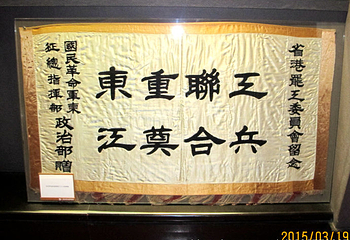 省港罷工委員會留念
工兵聯合
重奠東江
國民革命軍東
征總指揮部
政治部贈
2015/03/19